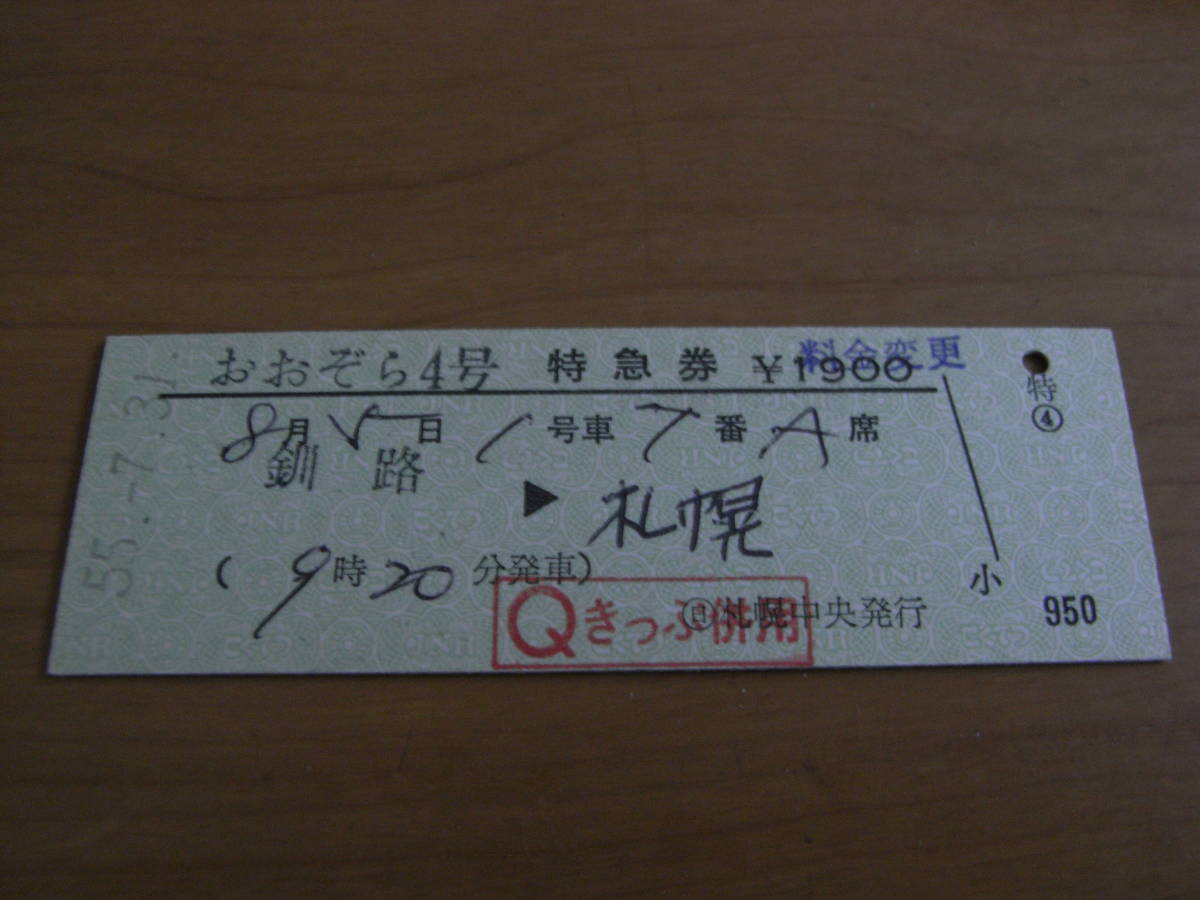 おおぞら4号 特急券 ¥1900
料金変更
特
④
8月5日 1号車 7番A席
釧路
▶ 札幌
(9時20分発車)
小
950
Qきっぷ併用
札幌中央発行
55.-7.31